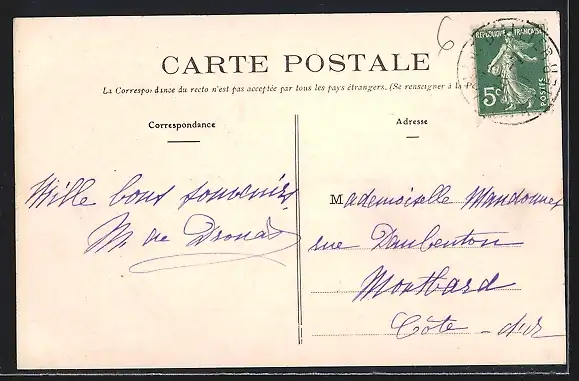 6
RÉPUBLIQUE FRANÇAISE
5c
POSTES
CARTE POSTALE
La Correspondance du recto n'est pas acceptée par tous les pays étrangers. (Se renseigner à la
Correspondance
Adresse
Mille bons souvenirs
M de
Mademoiselle Mandonnet
rue Daubenton
Montbard
Côte-d'or